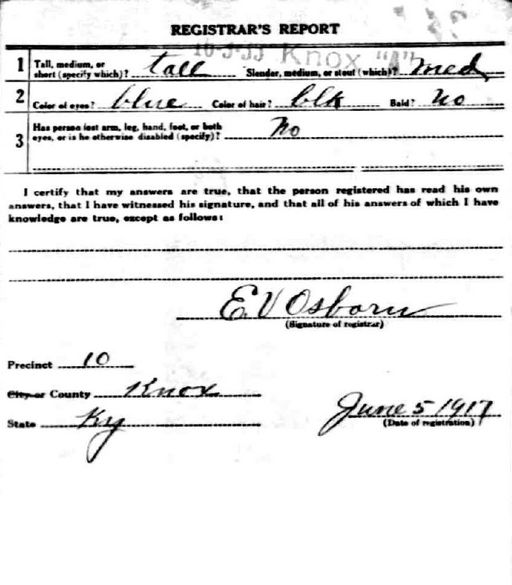 REGISTRAR'S REPORT
Knox "A"
1 Tall, medium, or short (specify which)? tall Slender, medium, or stout (which)? med
2 Color of eyes? blue Color of hair? blk Bald? No
3 Has person lost arm, leg, hand, foot, or both eyes, or is he otherwise disabled (specify)? No
I certify that my answers are true, that the person registered has read his own
answers, that I have witnessed his signature, and that all of his answers of which I have
knowledge are true, except as follows:
E V Osborn
(Signature of registrar)
Precinct 10
City or County Knox
State Ky
June 5 1917
(Date of registration)